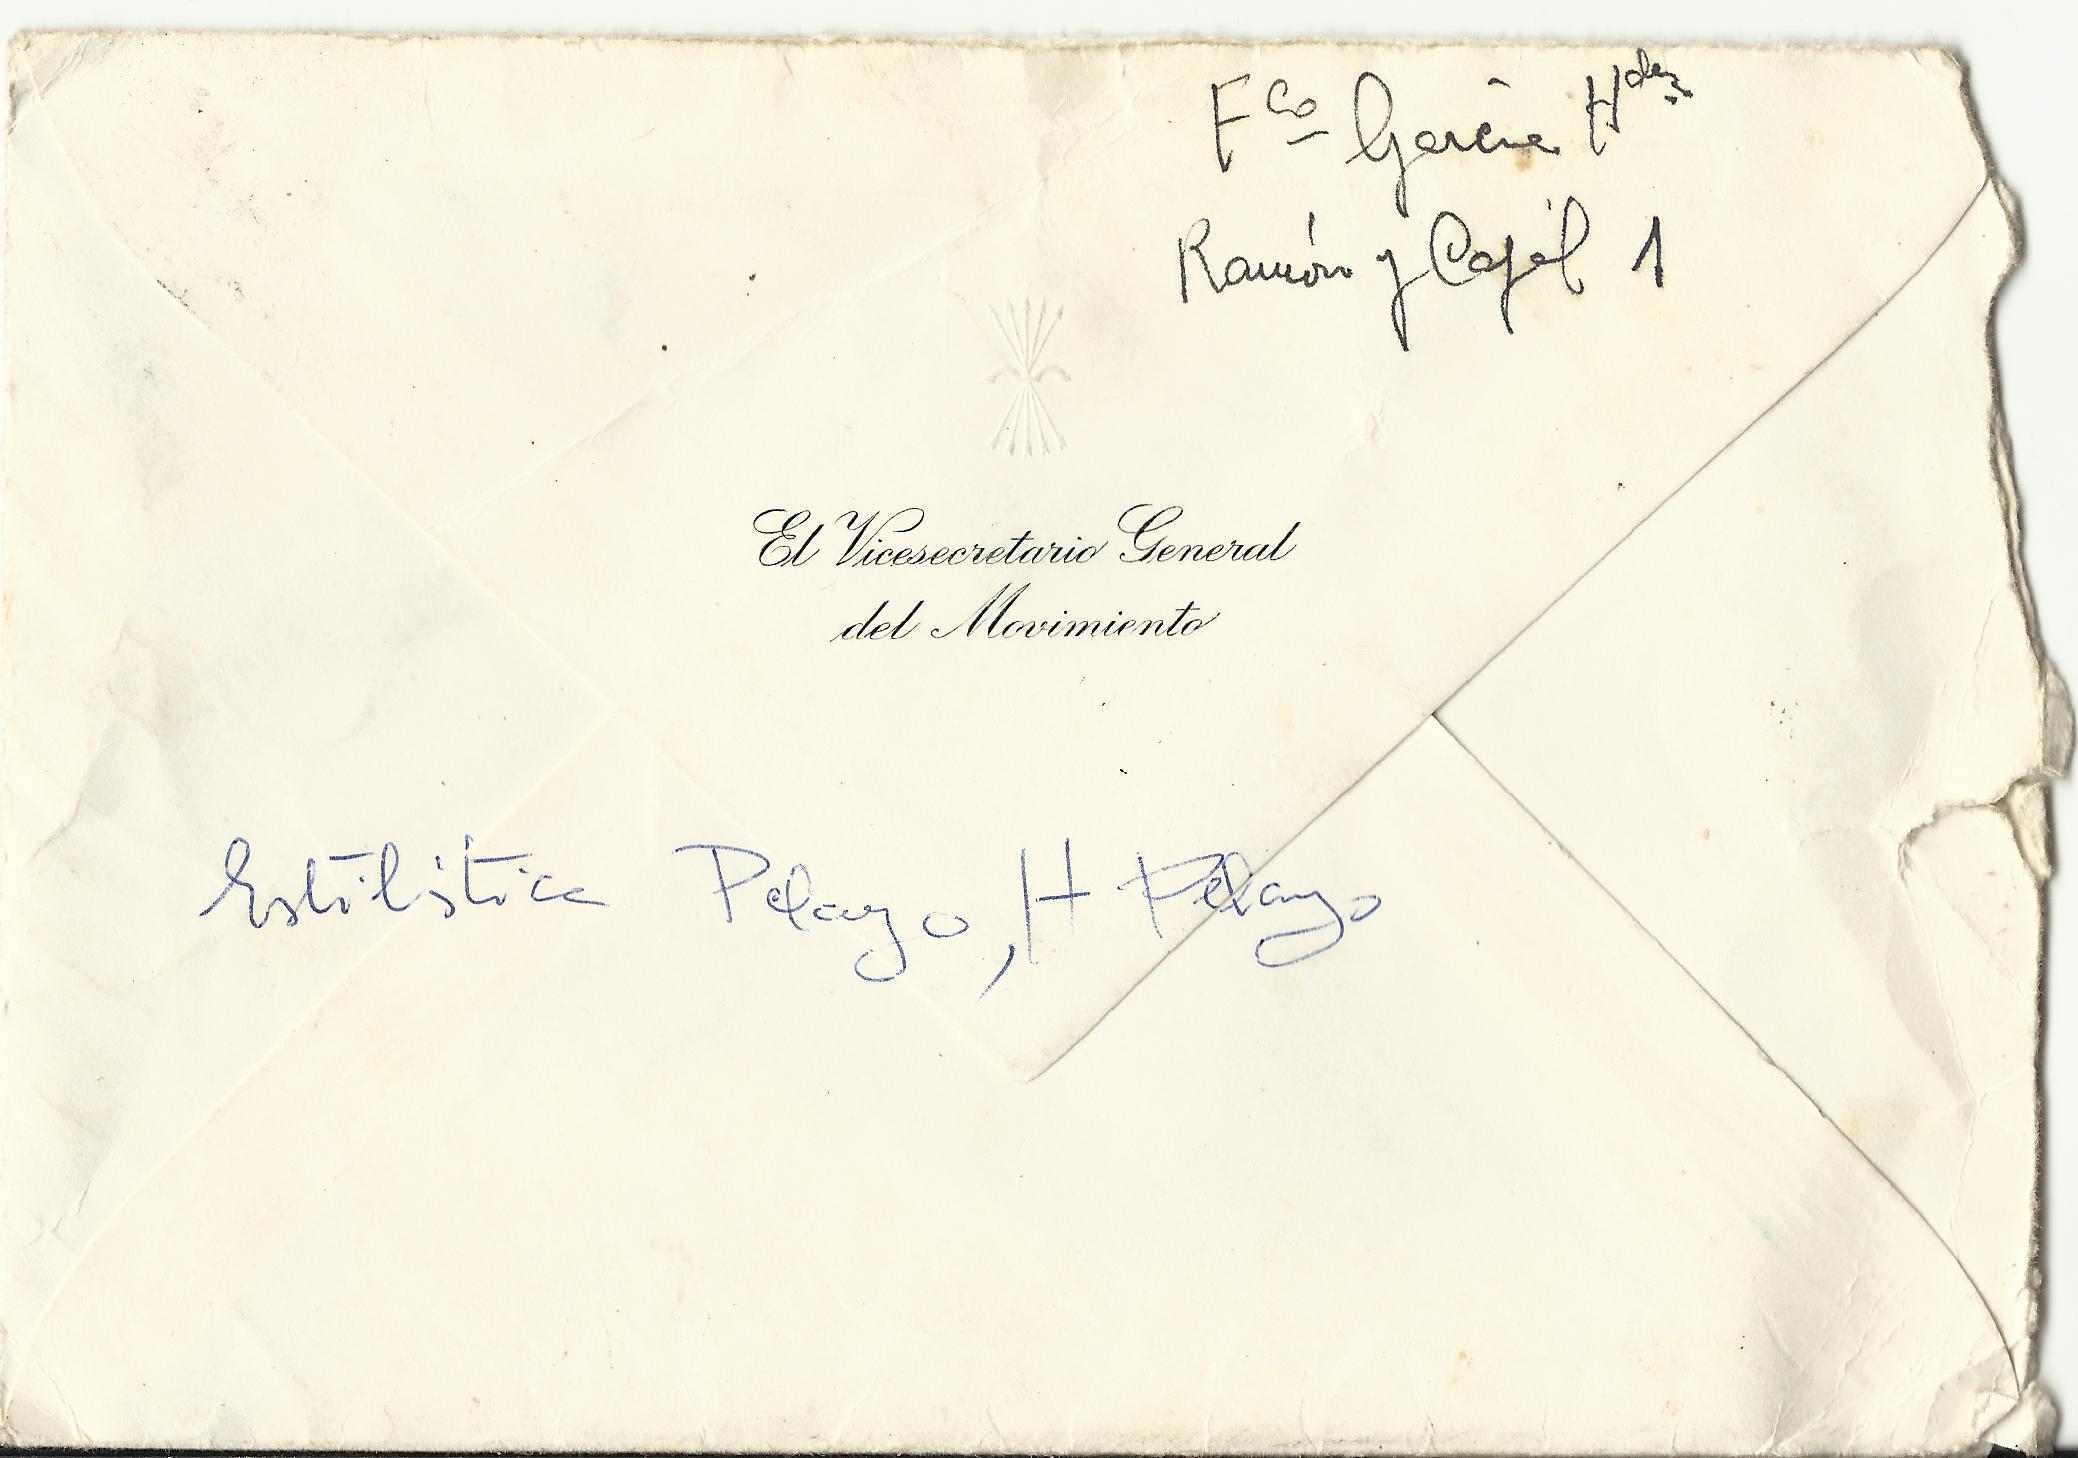 Fco Garcia Hdez
Ramón y Cajál 1
El Vicesecretario General
del Movimiento
Estilistica Pelayo, H Pelayo